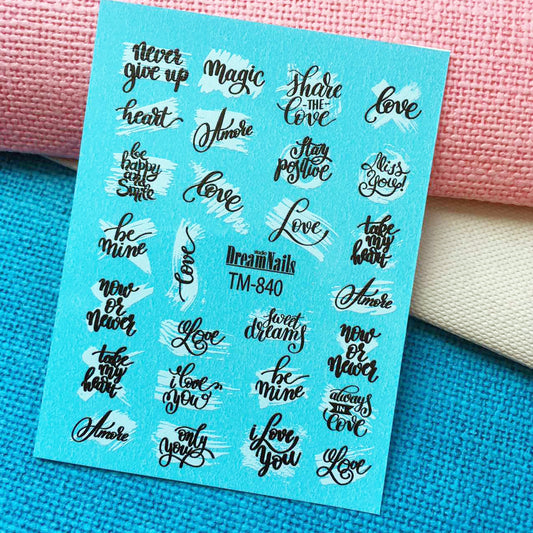 Never
give up
Magic
Share
-THE-
Love
Love
heart
Amore
Stay
positive
Miss
You!
be
happy
and
Smile
Love
Love
take
my
heart
be
mine
Love
studio
DreamNails
TM-840
Amore
now
or
Newer
Love
Sweet
dreams
now
or
Newer
take
my
heart
i love
You
be
mine
always
IN
Love
Amore
only
you
i Love
You
Love